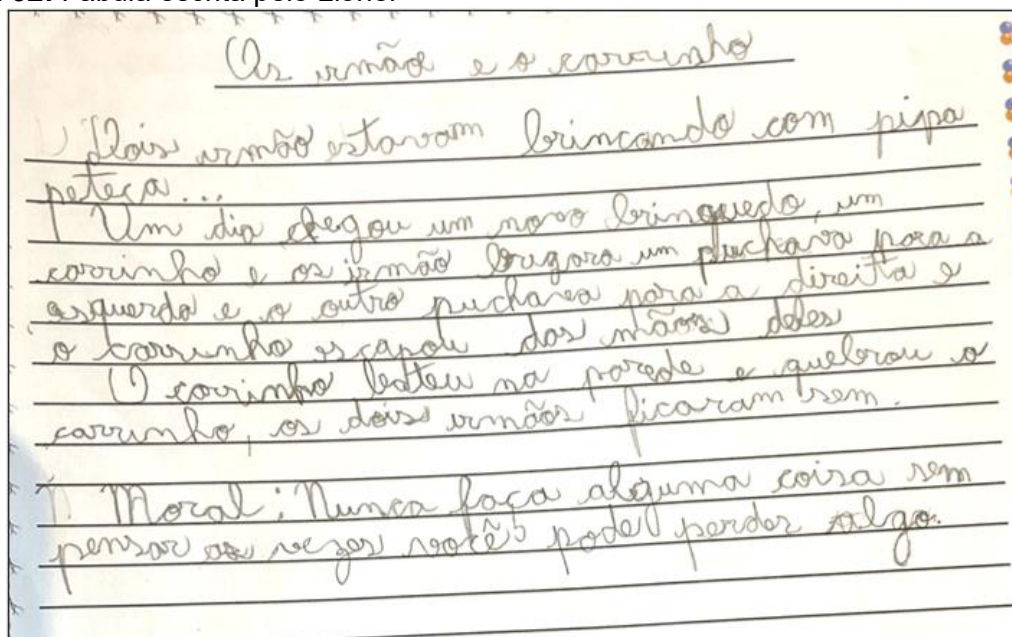 Fábula escrita pelo
Os irmão e o carrinho
Dois irmão estavam brincando com pipa
peteca...
Um dia chegou um novo brinquedo, um
carrinho e os irmão brigara um puchava para a
esquerda e o outro puchava para a direita e
o carrinho escapou das mãos deles
O carrinho bateu na parede e quebrou o
carrinho, os dois irmãos ficaram sem.
Moral: Nunca faça alguma coisa sem
pensar as vezes você pode perder algo.